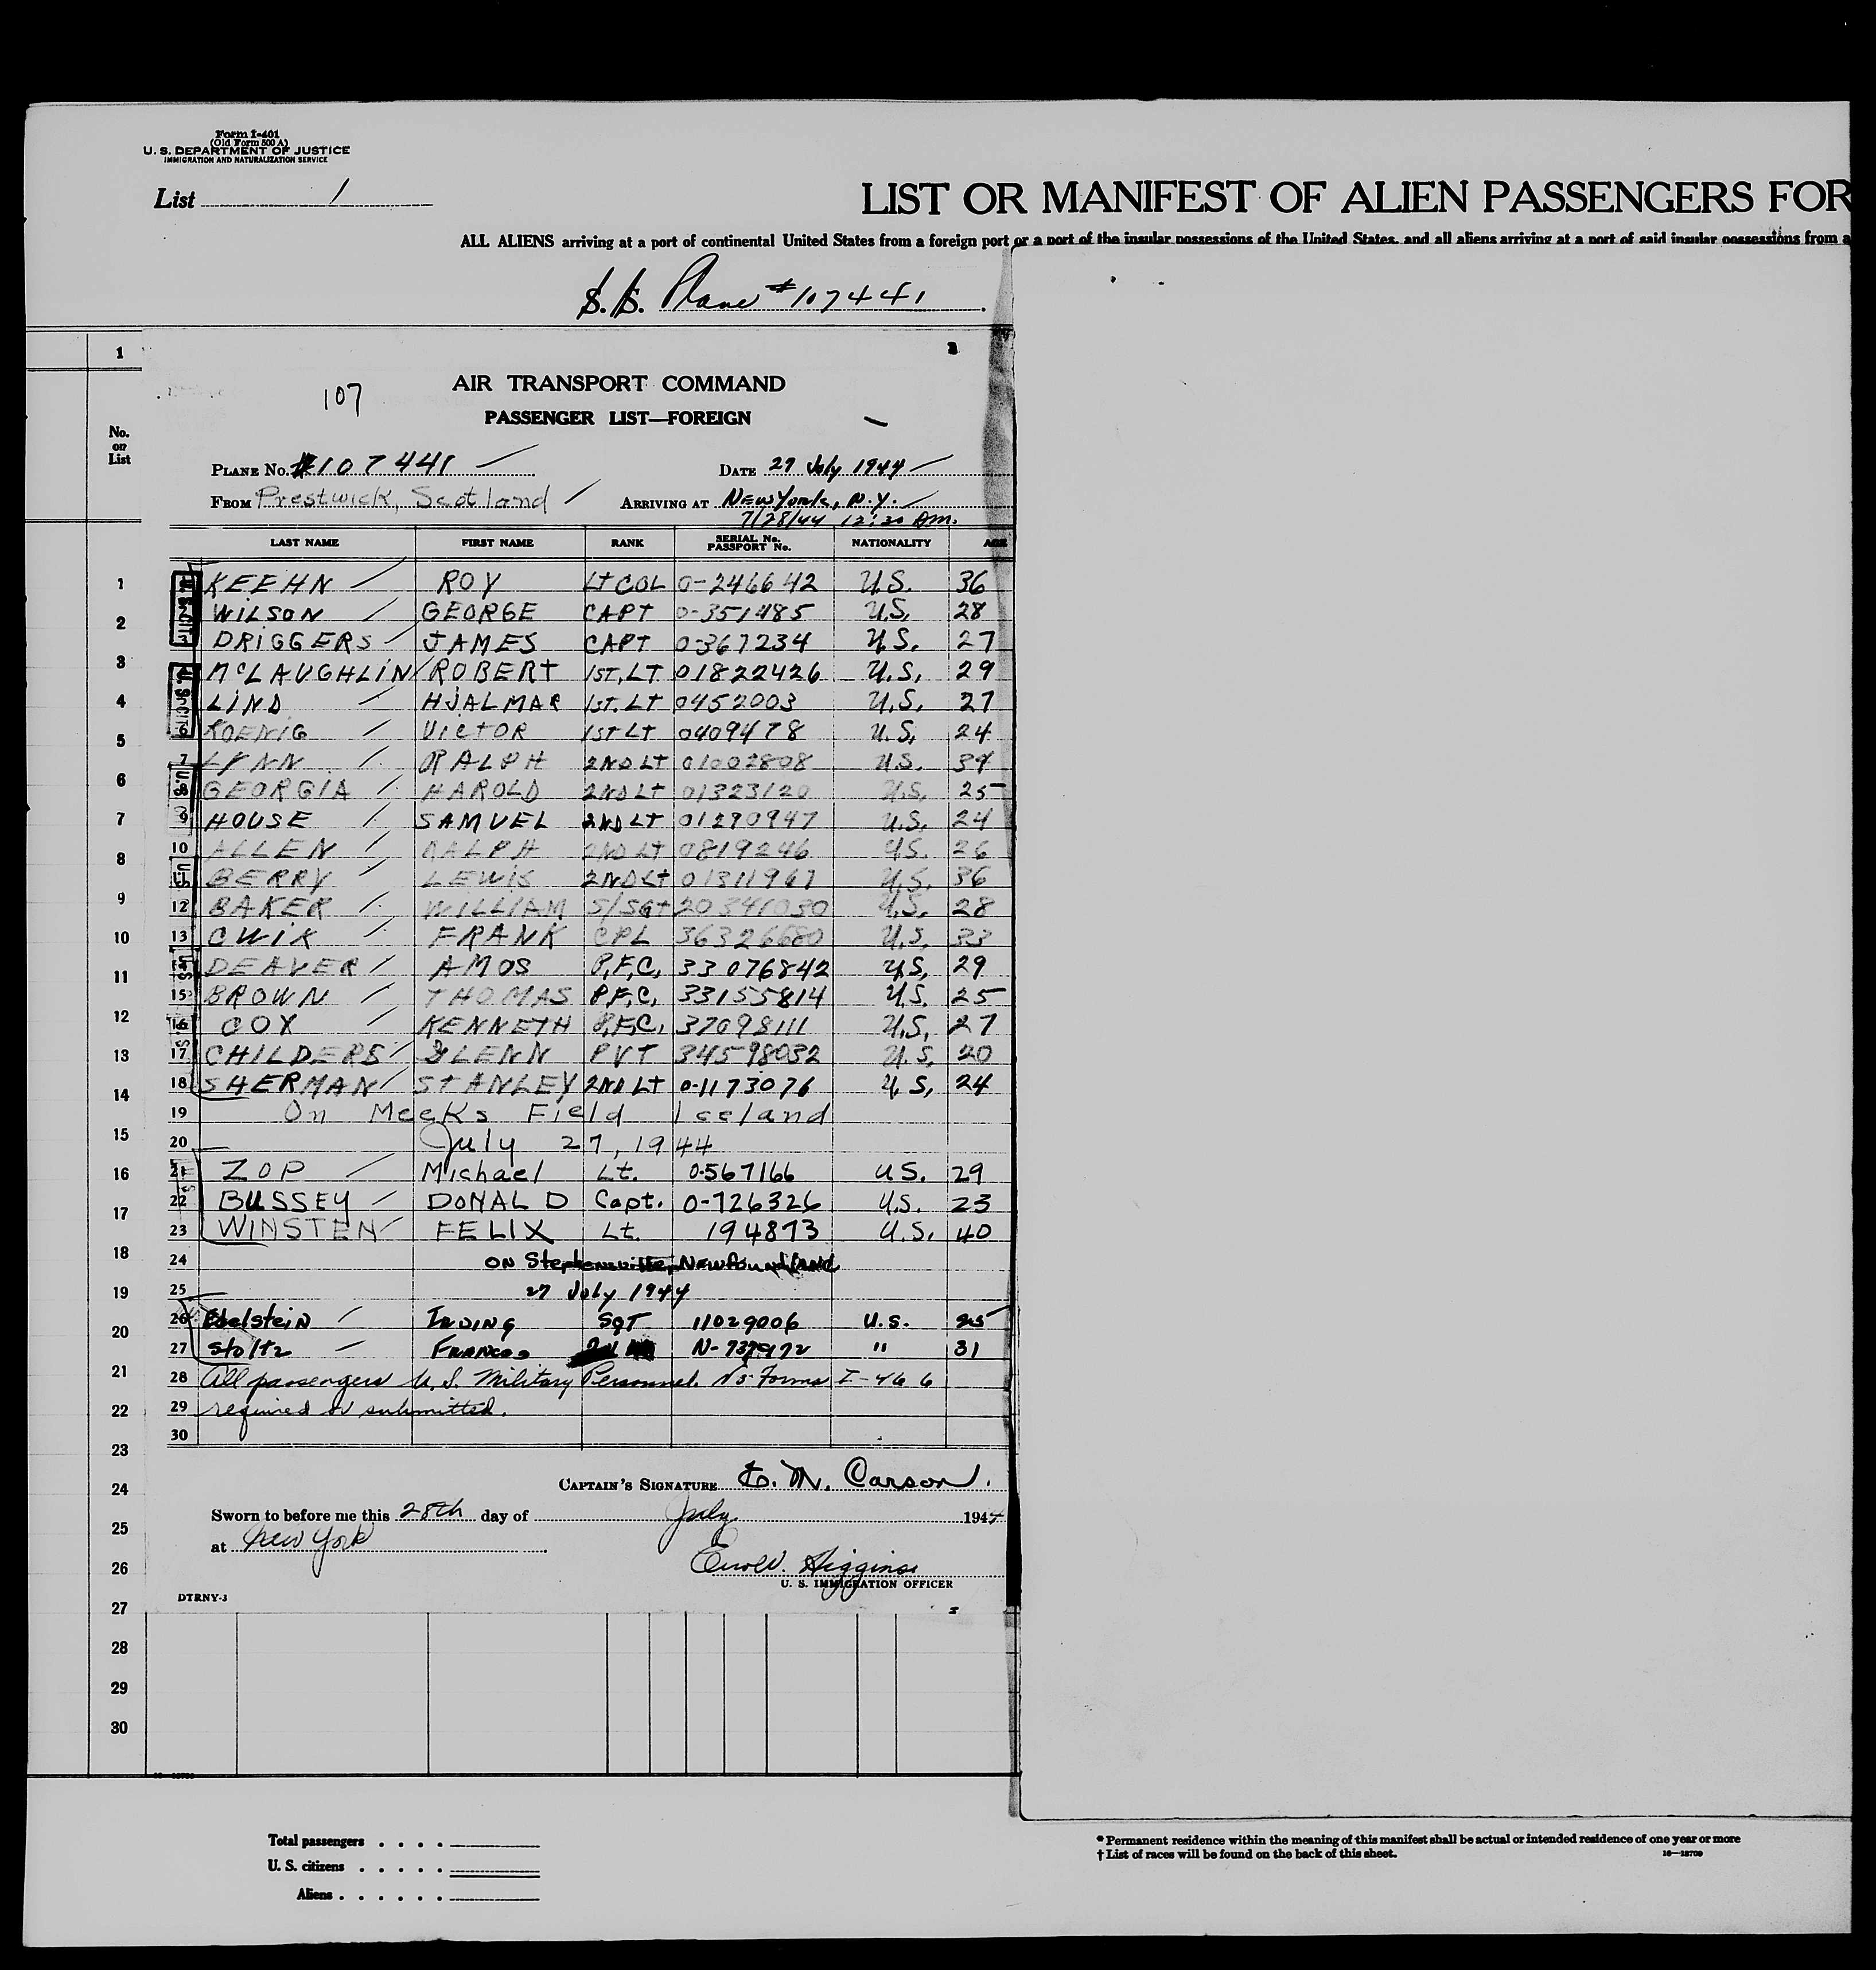 Form I-401
(Old Form 500 A)
U. S. DEPARTMENT OF JUSTICE
IMMIGRATION AND NATURALIZATION SERVICE
List 1
LIST OR MANIFEST OF ALIEN PASSENGERS FOR
ALL ALIENS arriving at a port of continental United States from a foreign port or a port of the insular possessions of the United States, and all aliens arriving at a port of said insular possessions from a
S. S. Plane #107441
1
No. on List
107
AIR TRANSPORT COMMAND
PASSENGER LIST—FOREIGN
PLANE No. #107441 DATE 27 July 1944
FROM Prestwick, Scotland ARRIVING AT New York, N.Y.
7/28/44 12:20 Am.
LAST NAME FIRST NAME RANK SERIAL No. PASSPORT No. NATIONALITY AGE
KEEHN ROY LT COL 0-246642 U.S. 36
WILSON GEORGE CAPT 0-351485 U.S. 28
DRIGGERS JAMES CAPT 0367234 U.S. 27
McLAUGHLIN ROBERT 1ST. LT 01822426 U.S. 29
LIND HJALMAR 1ST. LT 0452003 U.S. 27
KOENIG VICTOR 1ST LT 0409478 U.S. 24
7 LYNN RALPH 2ND LT 01002808 U.S. 39
8 GEORGIA HAROLD 2ND LT 01323120 U.S. 25
9 HOUSE SAMUEL 2ND LT 01290947 U.S. 24
10 ALLEN RALPH 2ND LT 0819246 U.S. 26
11 BERRY LEWIS 2ND LT 01311967 U.S. 36
12 BAKER WILLIAM S/SGT 20341030 U.S. 28
13 CWIK FRANK CPL 36326680 U.S. 33
14 DEAVER AMOS P.F.C. 33076842 U.S. 29
15 BROWN THOMAS P.F.C. 33155814 U.S. 25
16 COX KENNETH P.F.C. 37098111 U.S. 27
17 CHILDERS GLENN PVT 34598032 U.S. 20
18 SHERMAN STANLEY 2ND LT 0-1173076 U.S. 24
19 On Meeks Field Iceland
20 July 27, 1944
21 ZOP Michael Lt. 0-567166 U.S. 29
22 BUSSEY DONALD Capt. 0-726326 U.S. 23
23 WINSTEN FELIX Lt. 194873 U.S. 40
24 ON Stephensville, Newfoundland
25 27 July 1944
26 Edelstein Irving SGT 11029006 U.S. 25
27 Stoltz Frances N-737972 " 31
28 All passengers U.S. Military Personnel. No Forms I-466
29 required or submitted.
30
CAPTAIN'S SIGNATURE E. M. Carson.
Sworn to before me this 28th day of July 1944
at New York
Higgins
U. S. IMMIGRATION OFFICER
DTRNY-3
1
2
3
4
5
6
7
8
9
10
11
12
13
14
15
16
17
18
19
20
21
22
23
24
25
26
27
28
29
30
Total passengers . . . .
U. S. citizens . . . . .
Aliens . . . . . .
* Permanent residence within the meaning of this manifest shall be actual or intended residence of one year or more
† List of races will be found on the back of this sheet.
16—18709